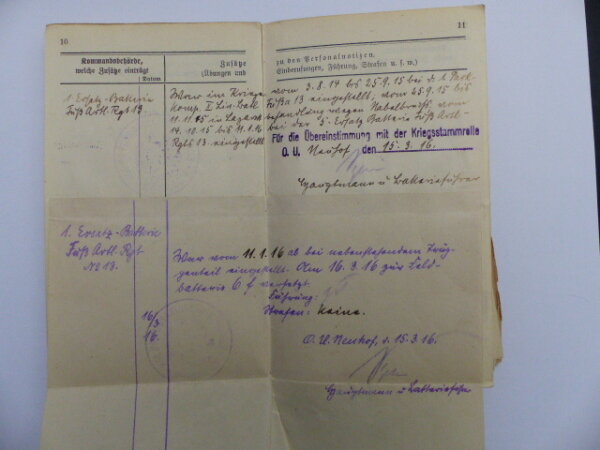 10
11
Kommandobehörde,
welche Zusätze einträgt
Datum
Zusätze
(Übungen und
zu den Personalnotizen.
Einberufungen, Führung, Strafen u. s. w.)
1. Ersatz-Batterie
Fuß Artl. Rgt 13.
War im Kriege vom 3.8.14 bis 25.9.15 bei d. 1. Park-
komp. II Fußa 13 eingestellt, vom 25.9.15 bis
11.11.15 in Lazarett behandlung wegen vom
14.10.15 bis 11.1.16 bei der 5. Ersatz Batterie Fuß Artl-
Rgts 13. eingestellt
Für die Übereinstimmung mit der Kriegsstammrolle
O. U. Neuhof, den 15.3.16.
Hauptmann u Batterieführer
1. Ersatz-Batterie
Fuß Artl. Rgt
No 13.
War vom 11.1.16 ab bei nebenstehendem Trup-
penteil eingestellt. Am 16.3.16 zur Feld-
batterie 6 f versetzt.
Führung: gut
Strafen: Keine.
16/3
16.
O. U. Neuhof, d. 15.3.16.
Hauptmann u Batterieführer